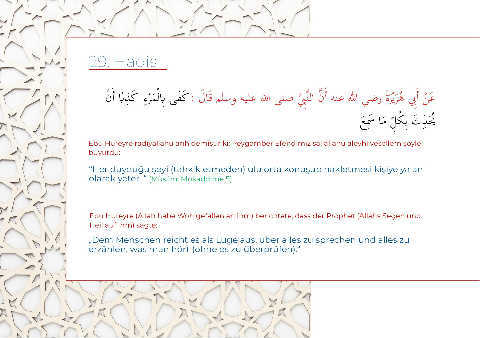 عَنْ أَبِي هُرَيْرَةَ رضي الله عنه أَنَّ النَّبِيَّ صلى الله عليه وسلم قَالَ : كَفَى بِالْمَرْءِ كَذِبًا أَنْ
يُحَدِّثَ بِكُلِّ مَا سَمِعَ
Ebu Hureyre radiyallahu anh demiştir ki: Peygamber Efendimiz sallallahu aleyhi vesellem şöyle
buyurdu:
"Her duyduğu şeyi (tahkik etmeden) ulu orta konuşup nakletmesi kişiye yalan
olarak yeter." (Müslim, Mukaddime 5)
Ebu Hureyre (Allah habe Wohlgefallen an ihm) berichtete, dass der Prophet (Allahs Segen und
sagte:
„Dem Menschen reicht es als Lüge aus, über alles zu sprechen und alles zu
erzählen, was man hört (ohne es zu überprüfen)."